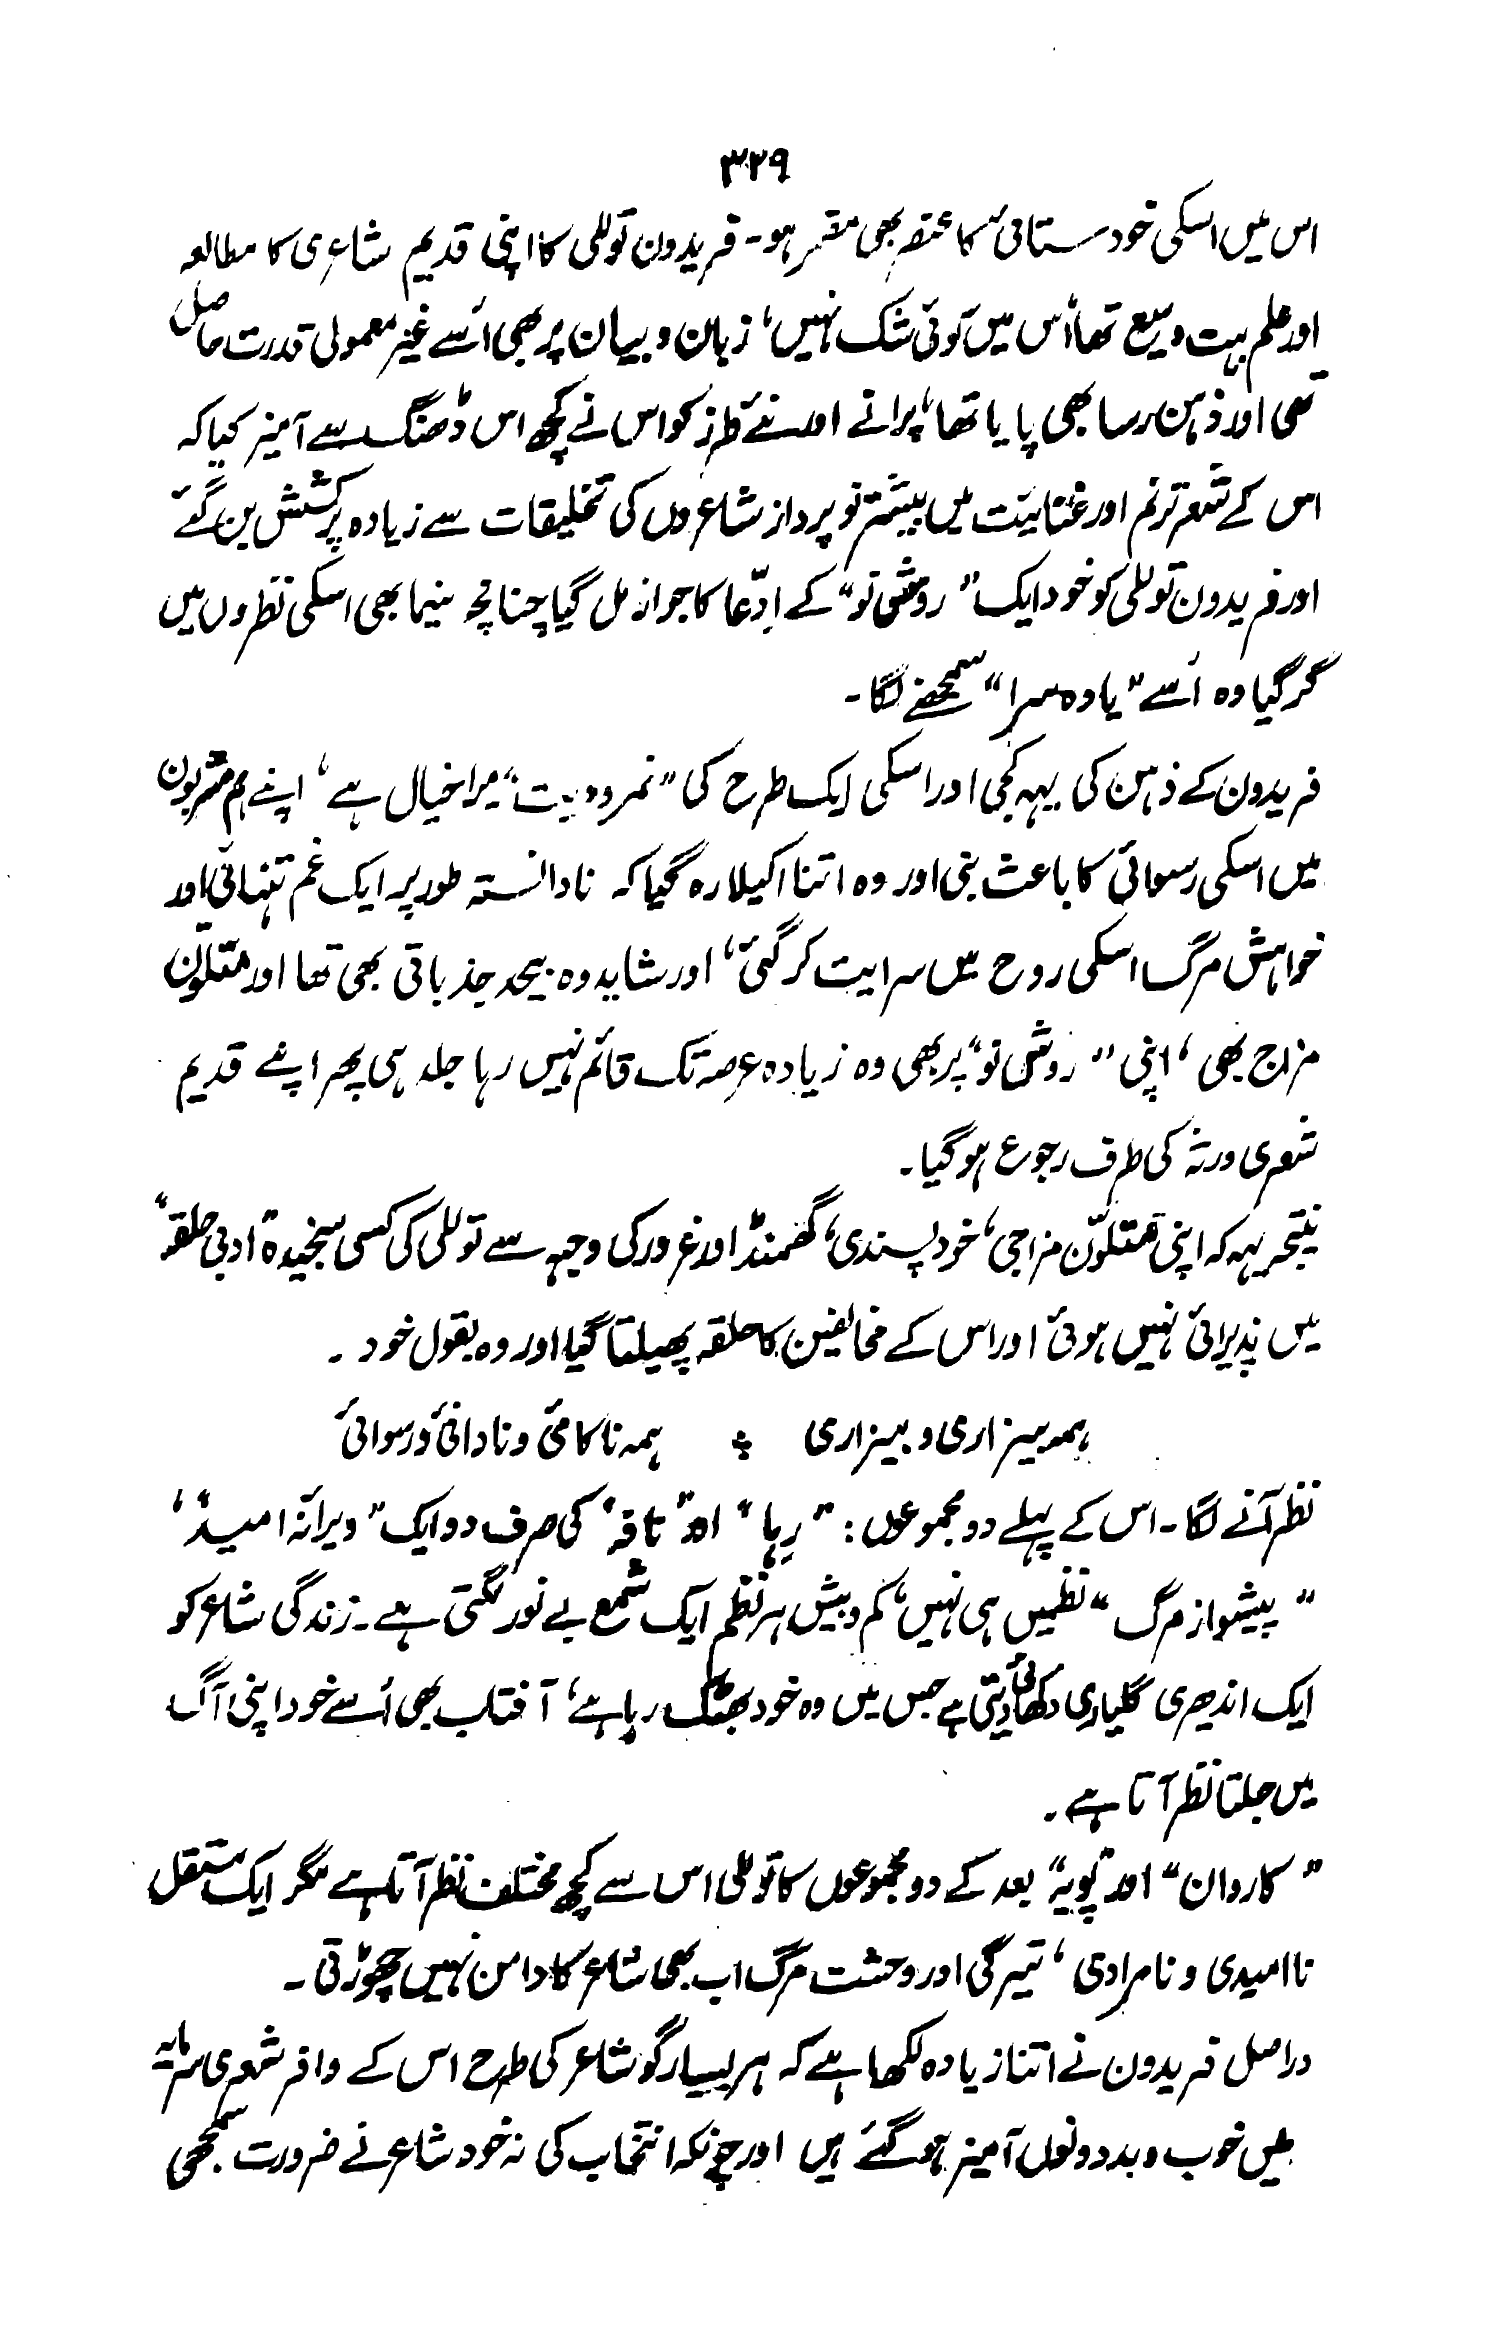 ۳۲۹
اس میں اسکی خودستائی کا عنصر بھی مضمر ہو۔ فریدون توللی کا اپنی قدیم شاعری کا مطالعہ
اور علم بہت وسیع تھا اُس میں کوئی شک نہیں، زبان و بیان پر بھی اُسے غیر معمولی قدرت حاصل
تھی اور ذہن رسا بھی پایا تھا، پرانے اور نئے طرز کو اس نے کچھ اس ڈھنگ سے آمیز کیا کہ
اس کے شعر ترنم اور غنائیت میں بیشتر نوپرداز شاعروں کی تخلیقات سے زیادہ پرکشش بن گئے
اور فریدون توللی کو خود ایک "روش نو" کے ادّعا کا جواز مل گیا چنانچہ نیما بھی اسکی نظروں میں
گر گیا وہ اُسے "یاوہ سرا" سمجھنے لگا۔
فریدون کے ذہن کی یہہ کجی اور اسکی ایک طرح کی "نمرودیت" میرا خیال ہے، اپنے ہم مشربوں
میں اسکی رسوائی کا باعث بنی اور وہ اتنا اکیلا رہ گیا کہ نادانستہ طور پر ایک غم تنہائی اور
خواہش مرگ اسکی روح میں سرایت کر گئی، اور شاید وہ بیحد جذباتی بھی تھا اور متلوّن
مزاج بھی، اپنی "روش نو" پر بھی وہ زیادہ عرصہ تک قائم نہیں رہا جلد ہی پھر اپنے قدیم
شعری ورثہ کی طرف رجوع ہو گیا۔
نتیجہ یہہ کہ اپنی متلوّن مزاجی، خود پسندی، گھمنڈ اور غرور کی وجہہ سے توللی کی کسی سنجیدہ "ادبی حلقہ"
میں پذیرائی نہیں ہوئی اور اس کے مخالفین کا حلقہ پھیلتا گیا اور وہ بقول خود۔
ہمہ بیزاری و بیزاری ؞ ہمہ ناکامئ و نادانئ و رسوائی
نظر آنے لگا۔ اس کے پہلے دو مجموعوں: "رہا" اور "نافہ" کی صرف دو ایک "ویرانہ امید"،
"پیشواز مرگ" نظمیں ہی نہیں، کم و بیش ہر نظم ایک شمع بے نور لگتی ہے۔ زندگی شاعر کو
ایک اندھیری گلیاری دکھائی دیتی ہے جس میں وہ خود بھٹک رہا ہے، آفتاب بھی اُسے خود اپنی آگ
میں جلتا نظر آتا ہے۔
"کاروان" اور "پویہ" بعد کے دو مجموعوں کا توللی اس سے کچھ مختلف نظر آتا ہے مگر ایک مستقل
ناامیدی و نامرادی، تیرگی اور وحشت مرگ اب بھی شاعر کا دامن نہیں چھوڑتی۔
دراصل فریدون نے اتنا زیادہ لکھا ہے کہ ہر بسیار گو شاعر کی طرح اس کے وافر شعری سرمایہ
میں خوب و بد دونوں آمیز ہو گئے ہیں اور چونکہ انتخاب کی نہ خود شاعر نے ضرورت سمجھی